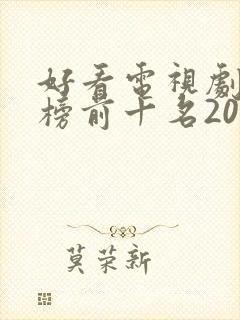 好看電視劇
榜前十名20
莫荣新